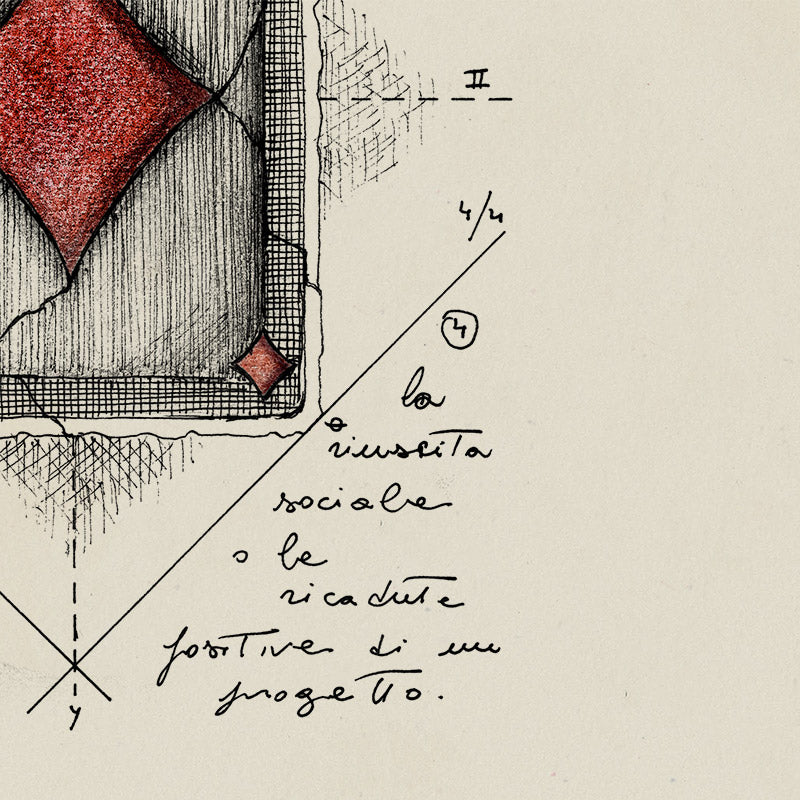 II
4/4
4
la
riuscita
sociale
o le
ricadute
positive di un
progetto.
y